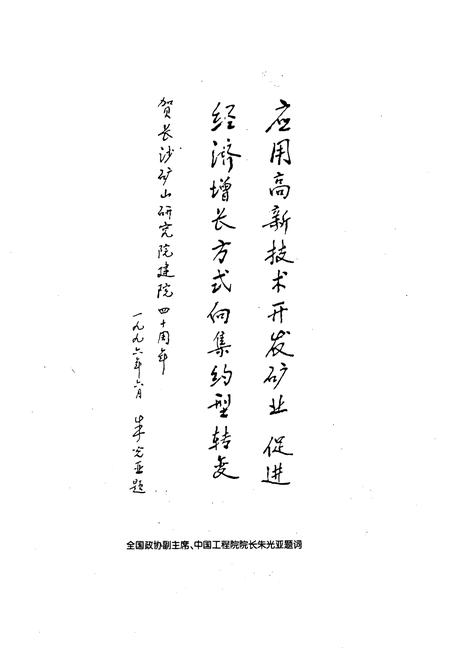 应用高新技术开发矿业 促进
经济增长方式向集约型转变
贺长沙矿山研究院建院四十周年
一九九六年六月 朱光亚题
全国政协副主席、中国工程院院长朱光亚题词